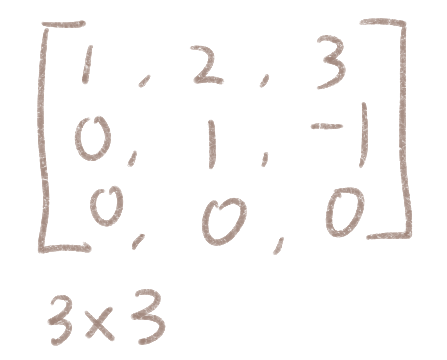 [1, 2, 3
0, 1, -1
0, 0, 0]
3×3